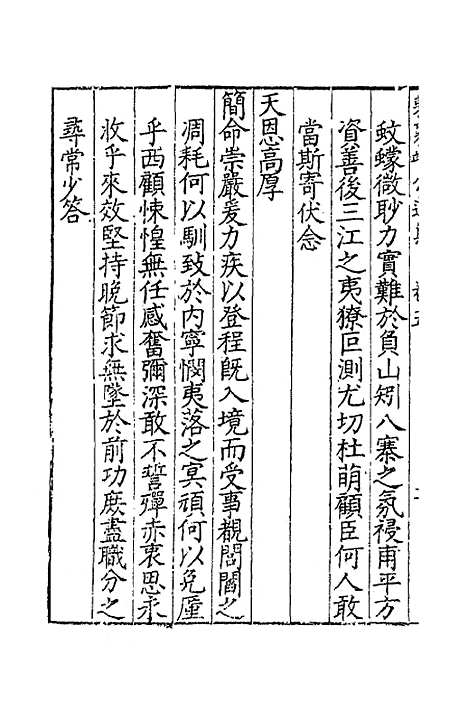 蚊蠓微眇力實難於負山矧八寨之氛祲甫平方
資善後三江之夷獠叵測尤切杜萌顧臣何人敢
當斯寄伏念
天恩高厚
簡命崇嚴爰力疾以登程既入境而受事覩閭閻之
凋耗何以馴致於内寧憫夷落之冥頑何以免廑
乎西顧悚惶無任感奮彌深敢不誓殫赤衷思永
收乎來效堅持晩節求無墜於前功庶盡職分之
尋常少答